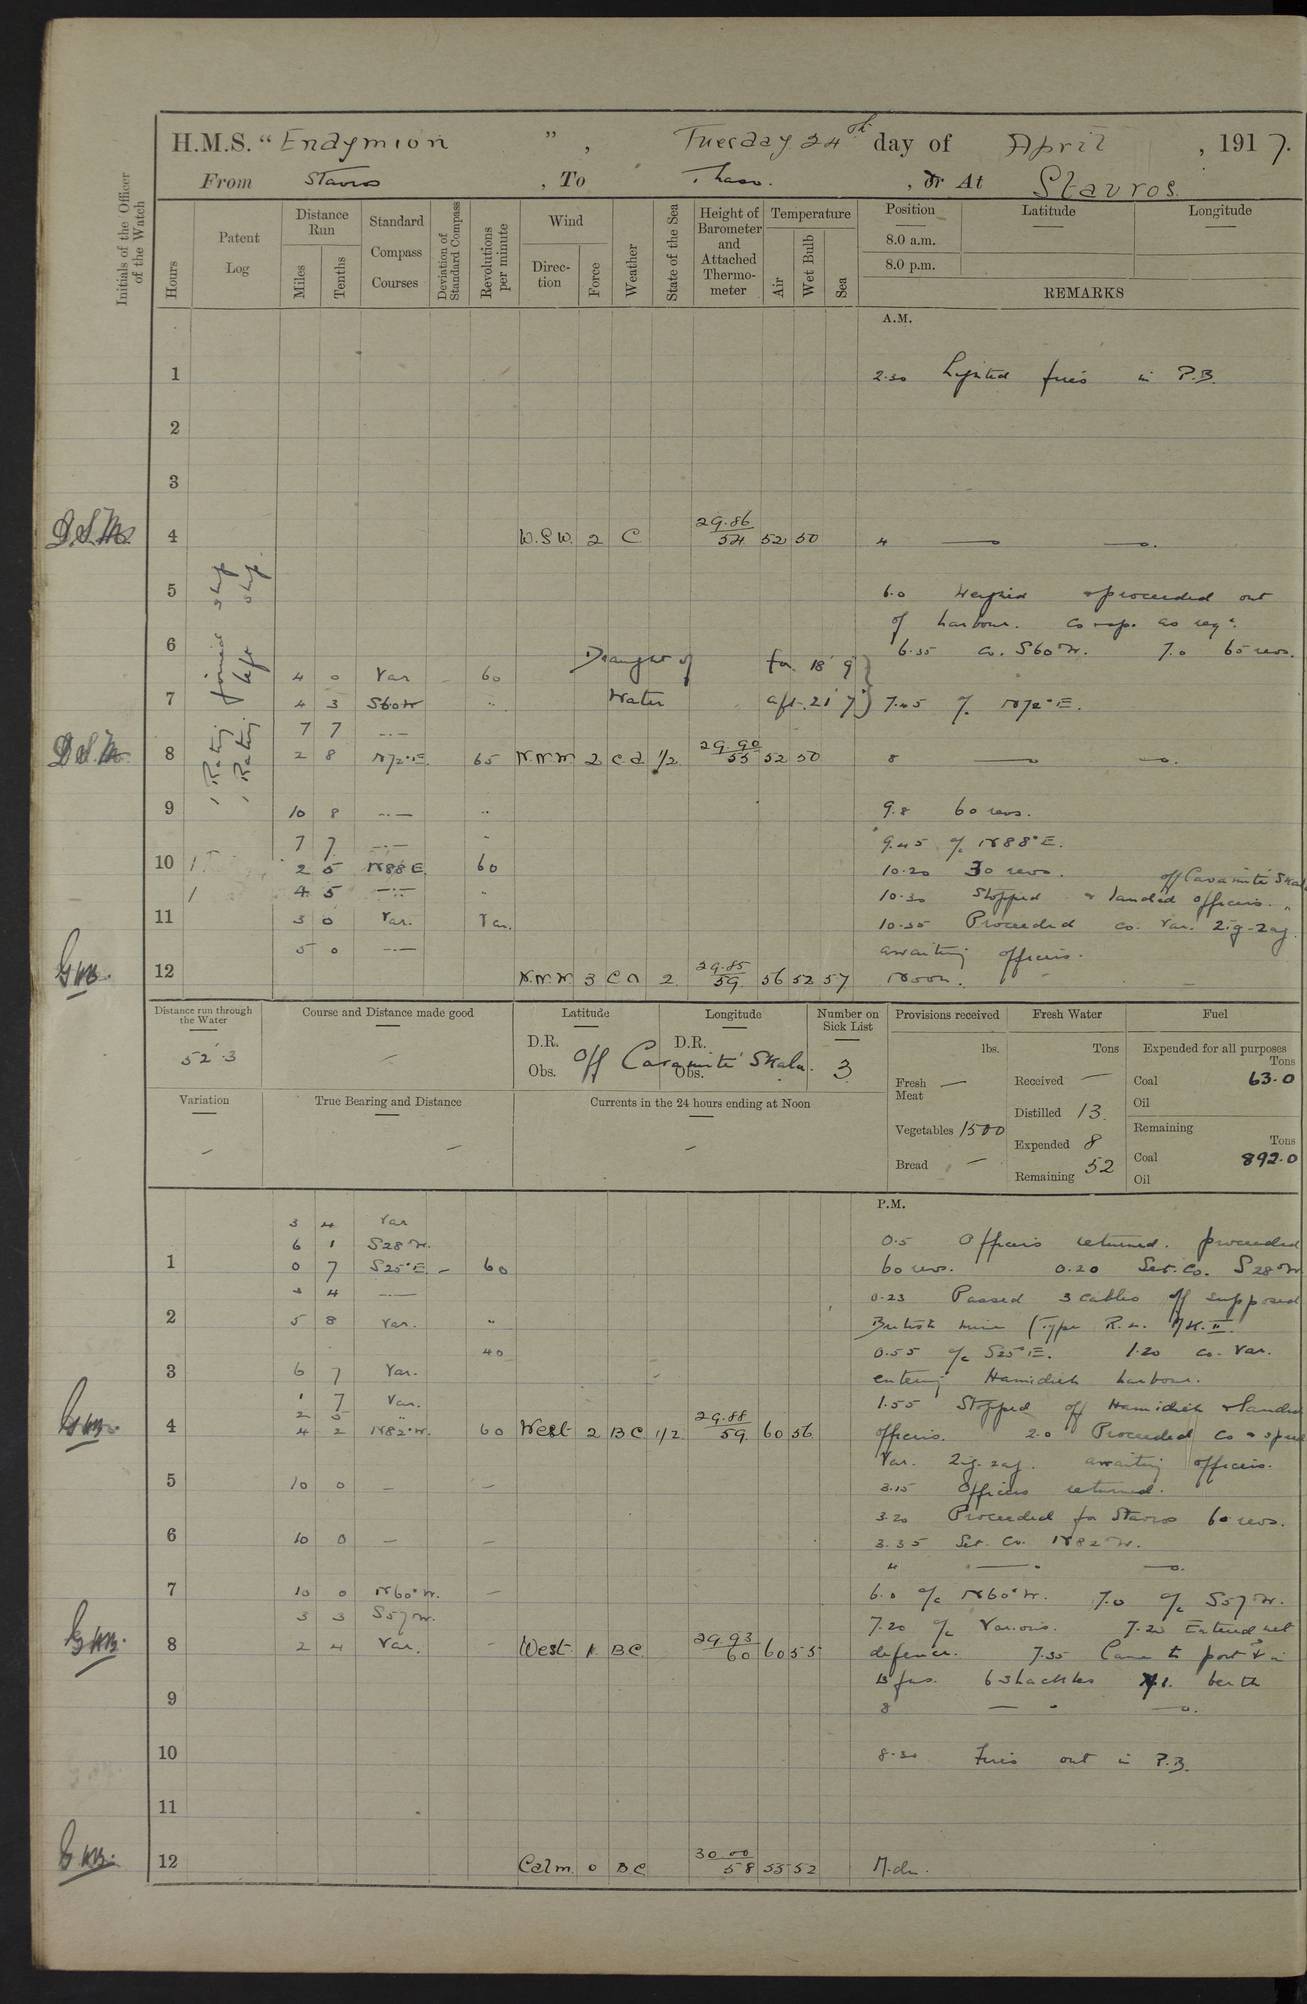 H.M.S. “ Endymion ” , Tuesday 24th day of April , 1917.
From Stavros , To Thaso. , or At Stavros.
Initials of the Officer of the Watch
Hours
Patent Log
Distance Run
Miles Tenths
Standard Compass Courses
Deviation of Standard Compass
Revolutions per minute
Wind
Direction Force
Weather
State of the Sea
Height of Barometer and Attached Thermometer
Temperature
Air Wet Bulb Sea
Position Latitude Longitude
8.0 a.m.
8.0 p.m.
REMARKS
A.M.
1 2.30 Lighted fires in P.B.
2
3
D.S.M. 4 W.S.W. 2 C 29.86/54 52 50 4
1 Rating joined ship
1 Rating left ship.
5 6.0 Weighed & proceeded out
of harbour. Co & sp. as req.
6 6.35 Co. S60W. 7.0 65 revs.
4 0 Var 60 Draught of Water for. 18' 9" aft. 21' 7"
7 4 3 S60W " 7.45 a/c N72°E.
7 7 -.-
D.S.M. 8 2 8 N72°E. 65 N.N.W. 2 C.d 1/2 29.90/55 52 50 8
9 10 8 -.- " 9.8 60 revs.
7 7 -.- " 9.45 a/c N88°E.
10 2 5 N88E. 60 10.20 30 revs. off Cavanite Skala
4 5 -.- " 10.30 Stopped & landed officers.
11 3 0 Var. Var. 10.35 Proceeded co. var. zig-zag.
5 0 -.- awaiting officers.
12 N.N.W 3 C 2 29.85/59 56 52 57 Noon.
Distance run through the Water
52.3
Course and Distance made good
Latitude
D.R.
Obs.
Longitude
D.R.
Obs.
Off Skala.
Number on Sick List
3
Provisions received
lbs.
Fresh Meat —
Vegetables 1500
Bread —
Fresh Water
Tons
Received —
Distilled 13.
Expended 8
Remaining 52
Fuel
Expended for all purposes
Tons
Coal 63.0
Oil
Remaining
Tons
Coal 892.0
Oil
Variation
True Bearing and Distance
Currents in the 24 hours ending at Noon
P.M.
3 4 Var
6 1 S28W. 0.5 Officers returned. proceeded
1 0 7 S25°E. - 60 60 revs. 0.20 Set. Co. S28W
3 4 -.- 0.23 Passed 3 cables off supposed
2 5 8 Var. " British mine (Type Mk. II.
40 0.55 a/c S25°E. 1.20 co. Var.
3 6 7 Var. entering Hamidieh harbour.
1 7 Var. 1.55 Stopped off Hamidieh & landed
2 5 "
4 4 2 N82°W. 60 West 2 BC 1/2 29.88/59 60 56 officers. 2.0 Proceeded co & speed
Var. zig-zag. awaiting officers.
5 10 0 — — 3.15 Officers returned.
3.20 Proceeded for Stavros 60 revs.
6 10 0 — — 3.35 Set. Co. N82W.
4
7 10 0 N60°W. — 6.0 a/c N60°W. 7.0 a/c S57W.
3 3 S57W. 7.20 a/c Various. 7.20 Entered net
8 2 4 Var. - West 1 BC 29.93/60 60 55 defence. 7.35 Came to port & in
13 fms. 6 shackles berth
9 8
10 8.30 Fires out in P.B.
11
12 Calm 0 BC 30.00/58 55 52 Mdn.